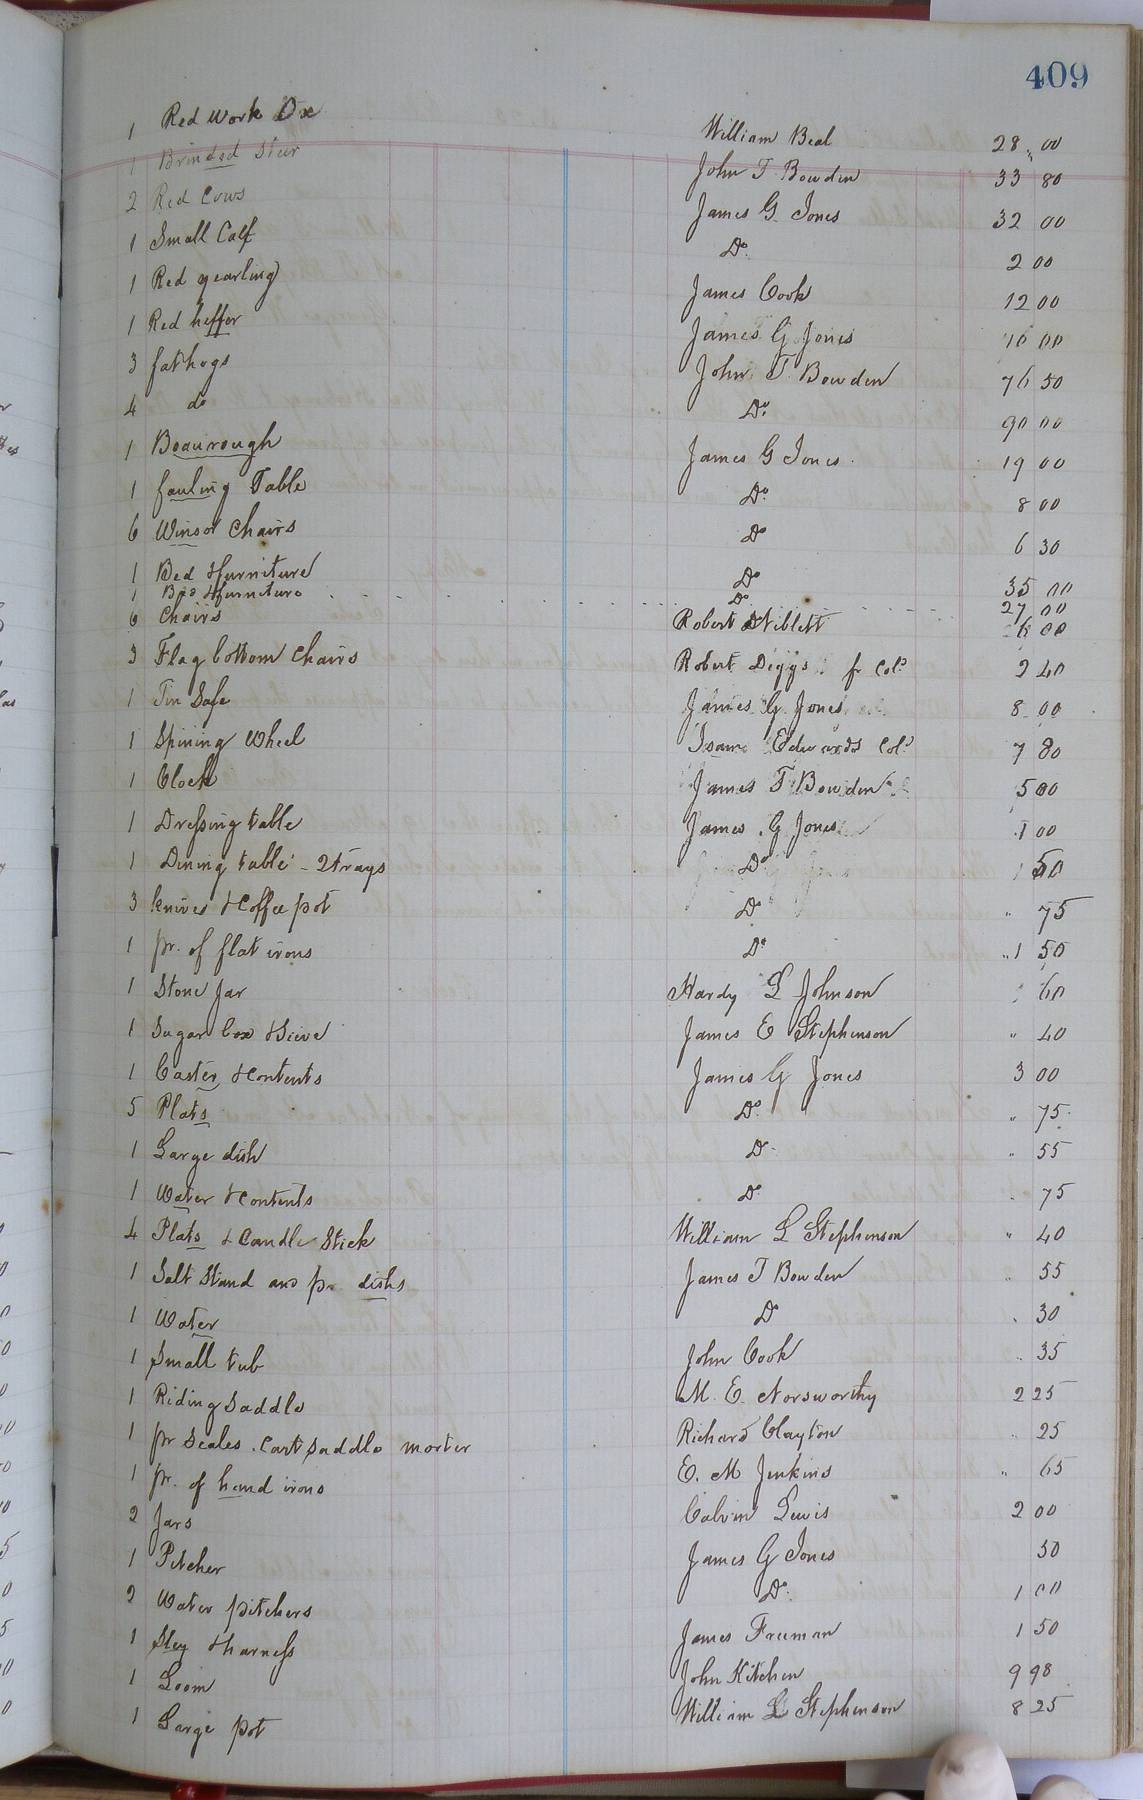 409
1 Red Work Ox William Beal 28 00
1 Brinded Steer John T Bowden 33 80
2 Red Cows James G Jones 32 00
1 Small Calf Do 2 00
1 Red yearling James Cook 12 00
1 Red heffer James G Jones 10 00
3 fat hogs John T Bowden 76 50
4 do Do 90 00
1 Beaurough James G Jones 19 00
1 fauling Table Do 8 00
6 Winsor Chairs Do 6 30
1 Bed & furniture Do 35 00
1 Bed & furniture Do 27 00
6 Chairs Robert Niblett 6 00
3 Flag bottom Chairs Robert Diggs fr Cold 2 40
1 Tin Safe James G Jones 8 00
1 Spining Wheel Isam Edwards Cold 7 80
1 Clock James T Bowden 5 00
1 Dressing table James G Jones 1 00
1 Dining table - 2 trays Do 1 50
3 knives & Coffee pot Do " 75
1 pr. of flat irons Do " 1 50
1 Stone Jar Hardy L Johnson 60
1 Sugar box & Sieve James E Stephenson " 40
1 Caster & Contents James G Jones 3 00
5 Plats Do " 75
1 Large dish Do " 55
1 Water & Contents Do " 75
4 Plats & Candle Stick William L Stephenson " 40
1 Salt Stand and pr dishs James T Bowden " 55
1 Water Do " 30
1 Small tub John Cook " 35
1 Riding Saddle M. E. Norsworthy 2 25
1 pr Scales. Cart Saddle morter Richard Clayton " 25
1 pr. of hand irons E. M Jenkins " 65
2 Jars Calvin Lewis 2 00
1 Pitcher James G Jones 50
2 Water pitchers Do 1 00
1 Sley & harness James Freeman 1 50
1 Loom John Kitchen 9 98
1 Large pot William L Stephenson 8 25